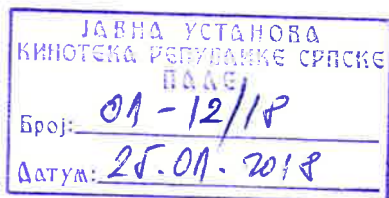 ЈАВНА УСТАНОВА
КИНОТЕКА РЕПУБЛИКЕ СРПСКЕ
ПАЛЕ
Број: 01-12/18
Датум: 25.01.2018